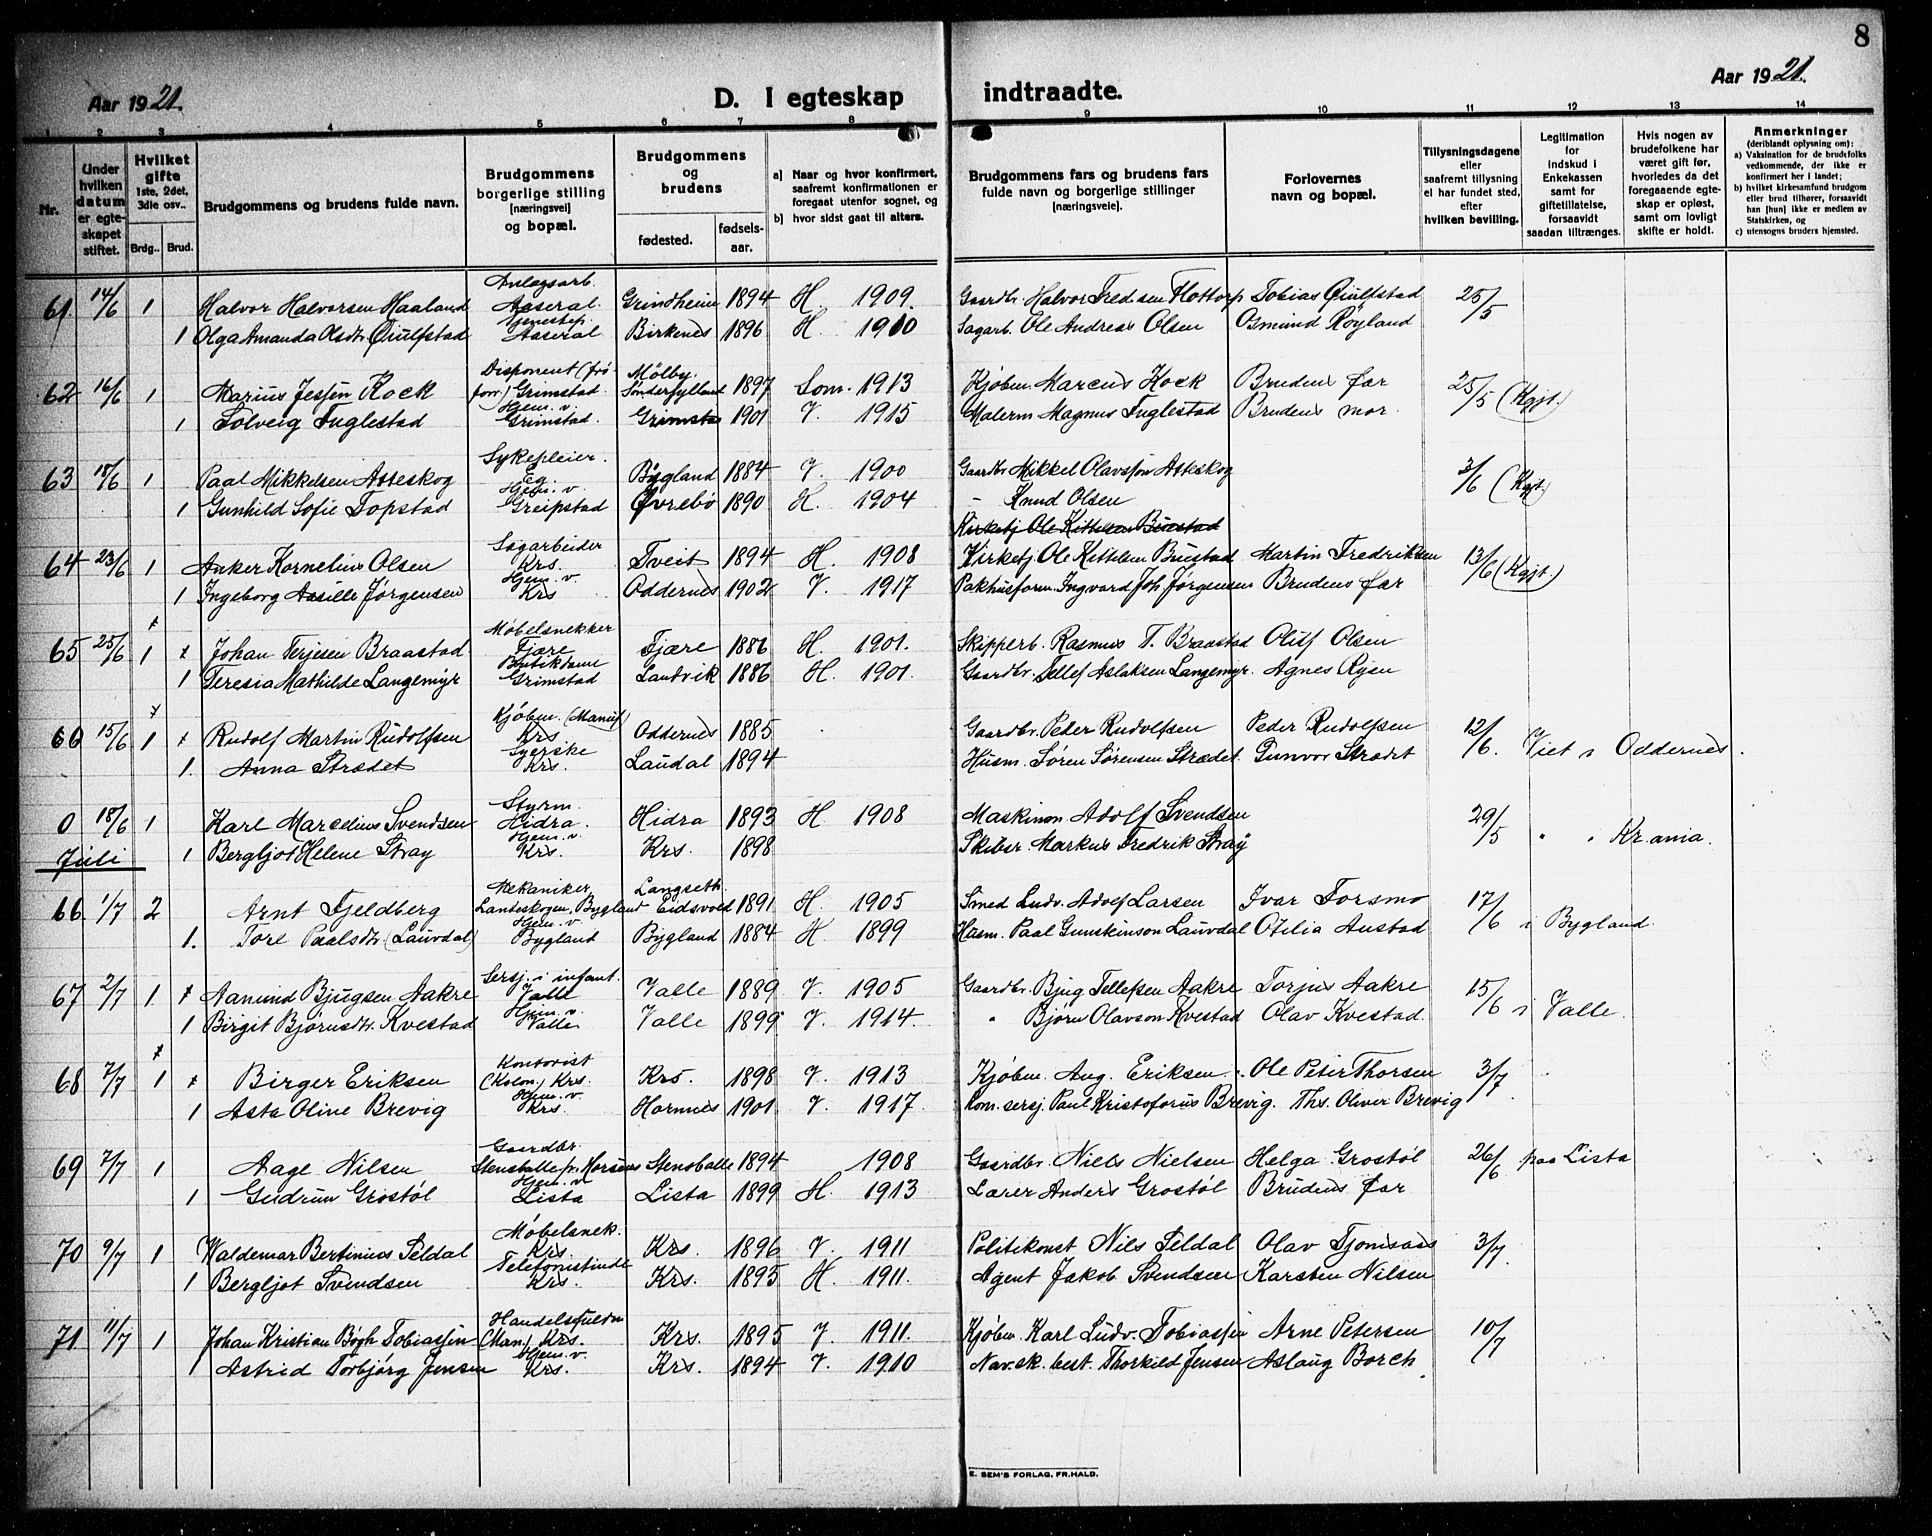 8
Aar 1921. D. I egteskap indtraadte. Aar 1921.
1 2 3 4 5 6 7 8 9 10 11 12 13 14
Nr.
Under hvilken datum er egteskapet stiftet.
Hvilket gifte 1ste, 2det, 3die osv.. Brdg.. Brud.
Brudgommens og brudens fulde navn.
Brudgommens borgerlige stilling [næringsvei] og bopæl.
Brudgommens og brudens fødested. fødsels-aar.
a) Naar og hvor konfirmert, saafremt konfirmationen er foregaaet utenfor sognet, og
b) hvor sidst gaat til alters.
Brudgommens fars og brudens fars fulde navn og borgerlige stillinger [næringsveie].
Forlovernes navn og bopæl.
Tillysningsdagene eller saafremt tillysning ei har fundet sted, efter hvilken bevilling.
Legitimation for indskud i Enkekassen samt for giftetillatelse, forsaavidt saadan tiltrænges.
Hvis nogen av brudefolkene har været gift før, hvorledes da det foregaaende egteskap er opløst, samt om lovligt skifte er holdt.
Anmerkninger (deriblandt oplysning om):
a) Vaksination for de brudefolks vedkommende, der ikke er konfirmert her i landet;
b) hvilket kirkesamfund brudgom eller brud tilhører, forsaavidt han [hun] ikke er medlem av Statskirken, og
c) utensogns bruders hjemsted.
Anlagsarb.
61. 14/6 1 Halvor Halvorsen Haaland Aaseral Grindheim 1894 H. 1909. Gaardbr. Halvor Fredsen Flottorp Tobias Øiulfstad 25/5
Tjenestep.
1 Olga Amanda Olsdtr Øiulfstad Aaseral Birkenes 1896 H. 1910 Sagarb. Ole Andreas Olsen Osmund Røyland
Disponent (frø- Mølby.
62 16/6 1 Marius Jessen Kock forr.) Grimstad Sønderjylland 1897 Som. 1913 Kjøbm. Marcus Kock Brudens far 25/5 (Kgjt.)
Hjem. v.
1 Solveig Fuglestad Grimstad. Grimstad 1901 V. 1915 Malerm Magnus Fuglestad Brudens mor.
Sykepleier.
63 18/6 1 Paal Mikkelsen Atteskog Eg. Bygland 1884 V. 1900 Gaardbr Mikkel Olavssøn Atteskog 3/6 (Kgjt.)
Hjem. v.
1 Gunhild Sofie Topstad Greipstad Øvrebø 1890 H. 1904 - Knud Olsen
Kirketj Ole Kittelsen Buestad
Sagarbeider
64 23/6 1 Anker Kornelius Olsen Krs. Tveit 1894 H. 1908 Kirketj Ole Kittelsen Buestad Martin Fredriksen 13/6 (Kgjt.)
Hjem. v.
1 Ingeborg Jørgensen Krs Oddernes 1902 V. 1917 Pakhusform. Ingvard Joh Jørgensen Brudens far
Møbelsnekker
65 25/6 1 Johan Terjesen Braastad Fjære Fjære 1886 H. 1901. Skipperb. Rasmus T. Braastad Oluf Olsen
Butikdame
1 Teresia Mathilde Langemyr Grimstad Landvik 1886 H. 1901. Gaardbr. Tellef Aslaksen Langemyr. Agnes Ryen
Kjøbm. (Manuf)
60 15/6 1 Rudolf Martin Rudolfsen Krs Oddernes 1885 Gaardbr. Peder Rudolfsen Peder Rudolfsen 12/6. Viet i Oddernes.
Syerske
1. Anna Strædet Krs. Laudal 1894 Husm. Søren Sørensen Strædet Gunvor Strædet
Styrm.
0 18/6 1 Karl Marcelius Svendsen Hidra. Hidra 1893 H 1908 Maskinm Adolf Svendsen 29/5 " " Kr.ania.
Hjem. v.
Juli 1 Bergljot Helene Stray Krs. Krs. 1898 Skibsr. Markus Fredrik Stray
Mekaniker, Langseth.
66. 1/7 2 Arnt Fjeldberg Lanteskogen, Bygland Eidsvold 1891 H. 1905 Smed Ludv. Adolf Larsen Ivar Forsmo 17/6 i Bygland.
Hjem. v
1. Tore Paalsdtr. (Lauvdal) Bygland Bygland 1884 H 1899 Husm. Paal Gunskinson Lauvdal Otilia Austad
Sersj. i infant.
67 2/7 1. Aanund Bjugsen Aakre Valle Valle 1889 V. 1905 Gaardbr. Bjug Tellefsen Aakre Torjus Aakre 15/6 i Valle.
Hjem. v.
1 Birgit Bjørnsdtr. Kvestad Valle Valle 1899 V. 1914. " Bjørn Olavson Kvestad Olav Kvestad.
Kontorist
68 7/7 1 Birger Eriksen (Kolon.) Krs. Krs. 1898 V. 1913 Kjøbm. Aug. Eriksen. Ole Peter Thorsen 3/7
Hjem. v.
1 Asta Oline Brevig Krs. Hornnes 1901 V. 1917. Kom. sersj. Paul Kristoforus Brevig. Ths. Oliver Brevig
Gaardbr.
69 7/7 1 Aage Nilsen Stensballe pr. Horsens Stensballe 1894 1908 Gaardbr. Niels Nielsen Helga Grostøl 26/6 paa Lista
Hjem. v
1 Gudrun Grostøl Lista Lista 1899 H. 1913 Lærer Anders Grostøl Brudens far
Møbelsnek.
70 9/7 1 Waldemar Bertinius Seldal Krs. Krs. 1896 V. 1911 Politikonst Nils Seldal Olav Tjomsaas 3/7.
Telefonistinde
1 Bergljot Svendsen Krs. Krs. 1895 H. 1911. Agent Jakob Svendsen Karsten Nilsen
Handelsfuldm
71 11/7 1 Johan Kristian Bøgh Tobiassen (Man.) Krs. Krs. 1895 V. 1911. Kjøbm. Karl Ludv. Tobiassen Arne Petersen 10/7
Hjem. v.
1 Astrid Torbjørg Jensen Krs. Krs. 1894 V. 1910 Nav. sk. best. Thorkild Jensen Aslaug Borch
E. SEM'S FORLAG, FR.HALD.